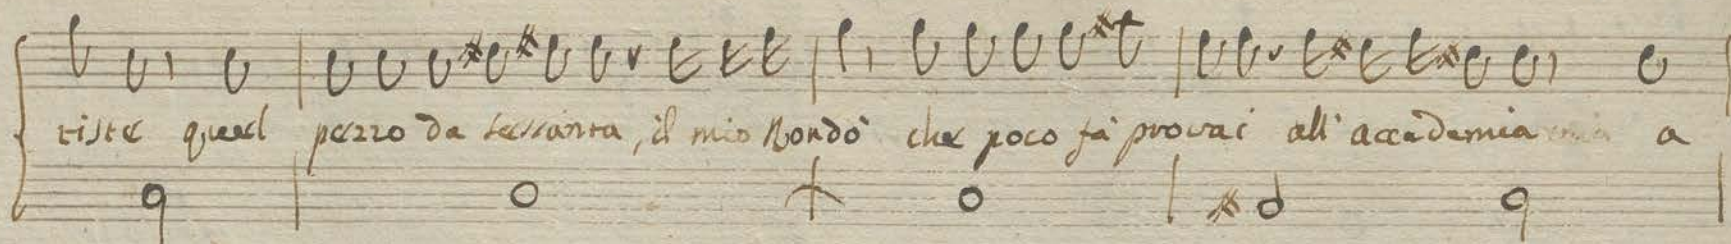 tiste quel pezzo da sessanta, il mio Rondò che poco fà provai all' accademia mia a